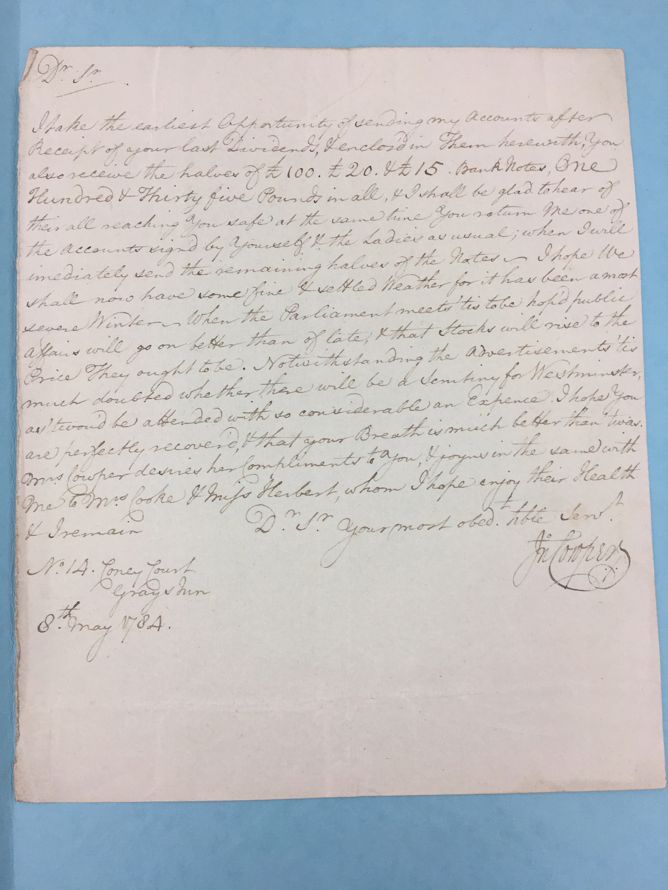 Dr. Sr.
I take the earliest Opportunity of sending my Accounts after
Receipt of your last Dividends, & enclos'd in Them herewith, You
also receive the halves of £100. £20. & £15. Bank Notes, One
Hundred & Thirty five Pounds in all, & I shall be glad to hear of
their all reaching You safe at the same time You return Me one of
the Accounts sign'd by Yourself & the Ladies as usual; when I will
imediately send the remaining halves of the Notes ~ I hope We
shall now have some fine & settled Weather for it has been a most
severe Winter ~ When the Parliament meets 'tis to be hop'd public
Affairs will go on better than of late, & that Stocks will rise to the
Price They ought to be. Notwithstanding the Advertisements 'tis
much doubted whether there will be a Scrutiny for Westminster,
as 'twou'd be attended with so considerable an Expence. I hope You
are perfectly recover'd, & that your Breath is much better than 'twas.
Mrs Cowper desires her Compliments to You, & joyns in the same with
Me to Mrs Cooke & Miss Herbert, whom I hope enjoy their Health
& I remain Dr. Sr. Your most obedt. hble Servt.
Jn Cowper
No. 14. Coney Court
Grays Inn
8th. May 1784.